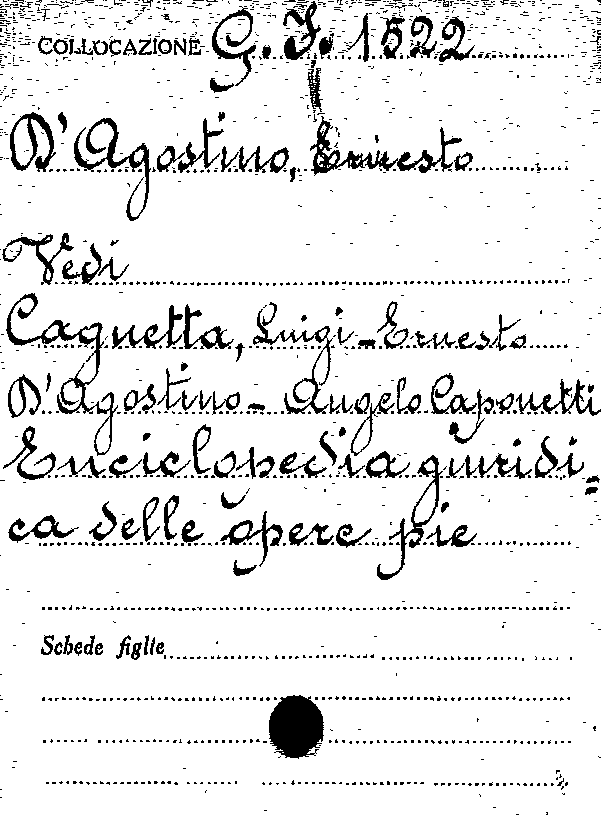 COLLOCAZIONE G. I. 1522
D'Agostino, Ernesto
Vedi
Cagnetta, Luigi - Ernesto
D'Agostino - Angelo Caponetti
Enciclopedia giuridi=
ca delle opere pie
Schede figlie